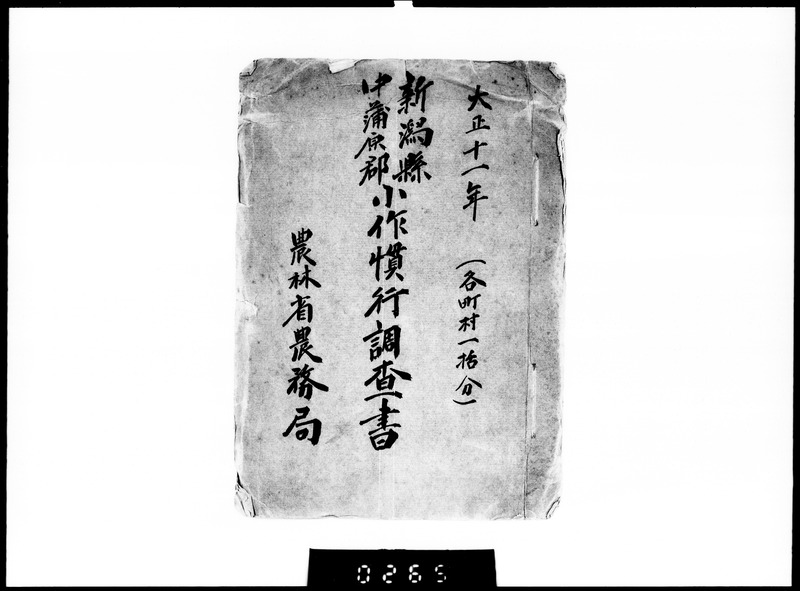 大正十一年 (各町村一括分)
新潟縣
中蒲原郡
小作慣行調査書
農林省農務局
0265